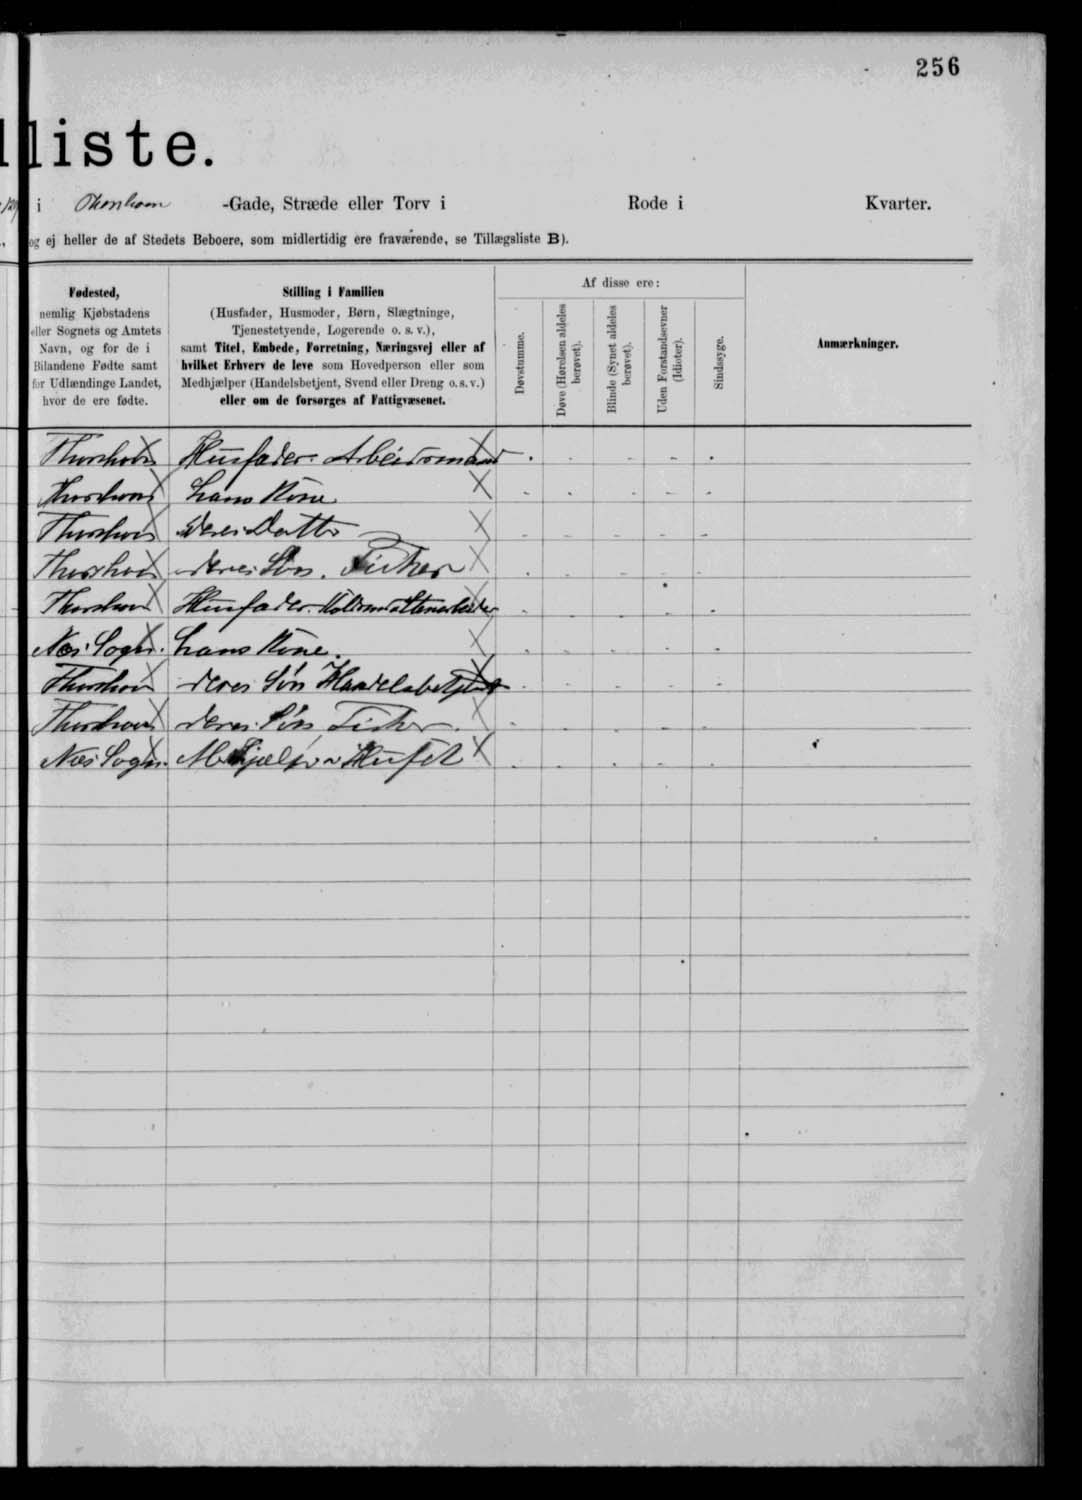 256
liste.
i Thorshavn -Gade, Stræde eller Torv i Rode i Kvarter.
og ej heller de af Stedets Beboere, som midlertidig ere fraværende, se Tillægsliste B).
Fødested,
nemlig Kjøbstadens
eller Sognets og Amtets
Navn, og for de i
Bilandene Fødte samt
for Udlændinge Landet,
hvor de ere fødte.
Stilling i Familien
(Husfader, Husmoder, Børn, Slægtninge,
Tjenestetyende, Logerende o. s. v.),
samt Titel, Embede, Forretning, Næringsvej eller af
hvilket Erhverv de leve som Hovedperson eller som
Medhjælper (Handelsbetjent, Svend eller Dreng o.s.v.)
eller om de forsørges af Fattigvæsenet.
Af disse ere:
Døvstumme.
Døve (Hørelsen aldeles
berøvet).
Blinde (Synet aldeles
berøvet).
Uden Forstandsevner
(Idioter).
Sindssyge.
Anmærkninger.
Thorshavn Husfader. Arbeidsmand
Thorshavn hans Kone
Thorshavn deres Datter
Thorshavn deres Søn. Fisker
Thorshavn Husfader.
Næs Sogn. hans Kone.
Thorshavn deres Søn Handelsbetjent
Thorshavn deres Søn Fisker
Næs Sogn. Huset